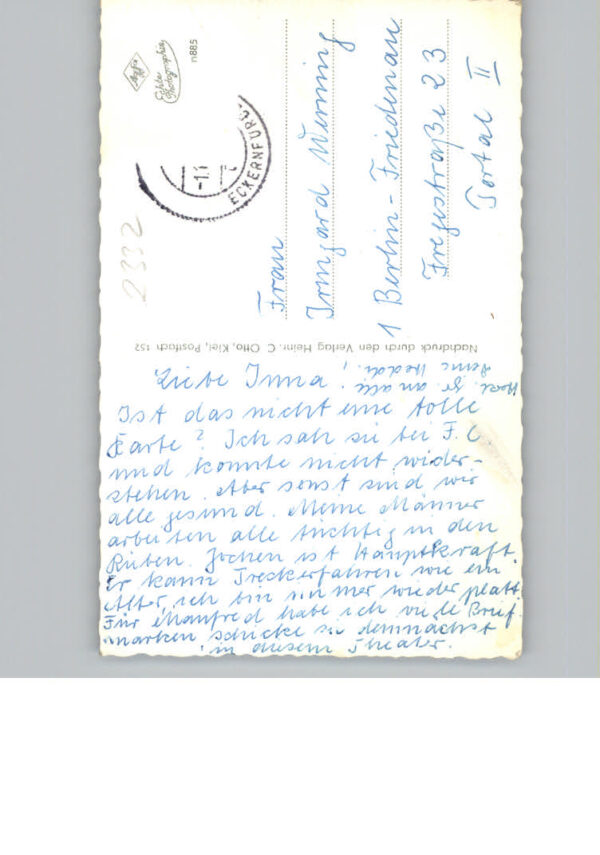 Liebe Inna!
Ist das nicht eine tolle
Karte? Ich sah sie bei F. C.
und konnte nicht wider-
stehen. Aber sonst sind wir
alle gesund. Meine Männer
arbeiten alle tüchtig in den
Rüben. Jochen ist Hauptkraft.
Er kann Treckerfahren wie ein
Alter, ich bin immer wieder platt.
Für Manfred habe ich viele Brief-
marken schicke sie demnächst
in diesem Theater.
Herzl. Gr. an alle
Deine
Nachdruck durch den Verlag Heinr. C. Otto, Kiel, Postfach 152
Frau
Irmgard Wenning
1 Berlin-Friedenau
Fregestraße 23
Portal II
ECKERNFÖRDE
-1.1
2332
Agfa
Echte
Photographie
n885